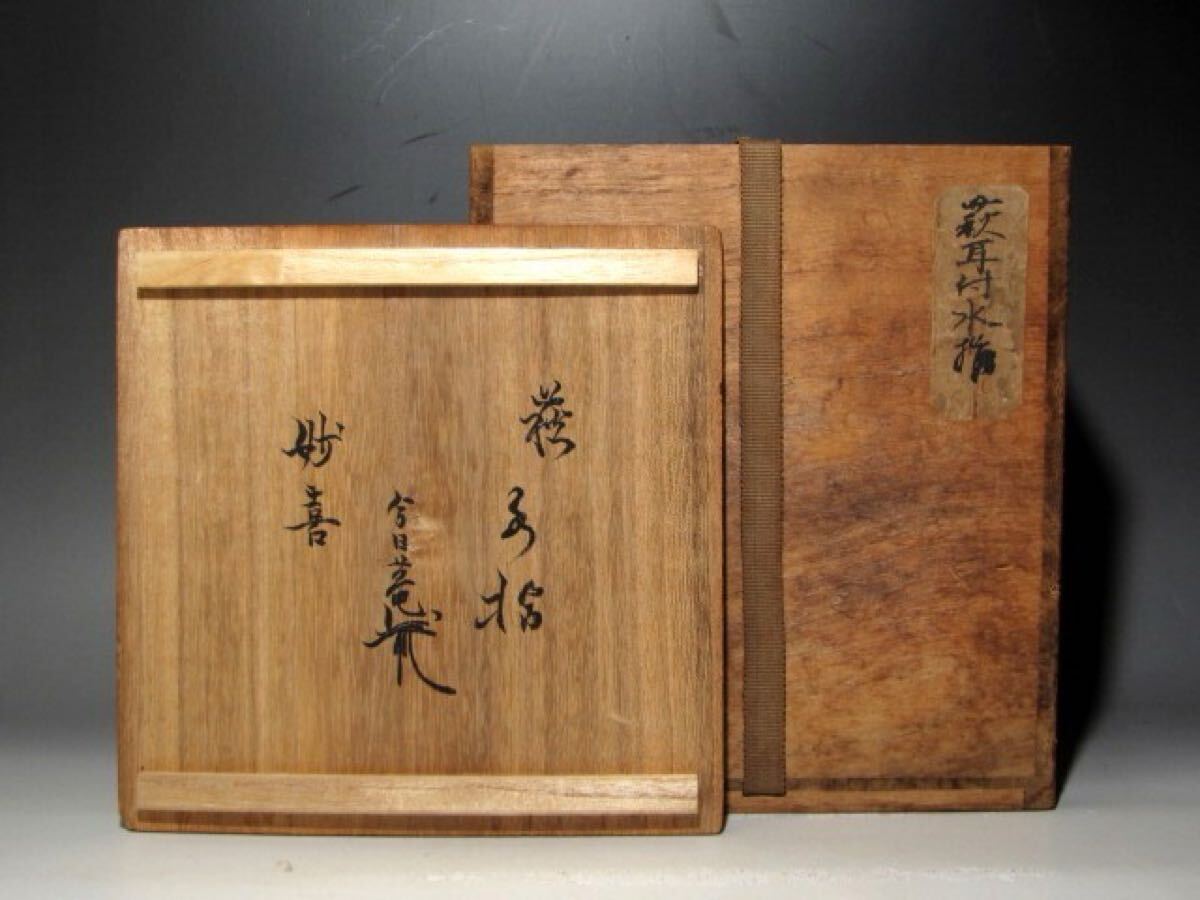 萩耳付水指
萩 水指
今日菴
妙喜